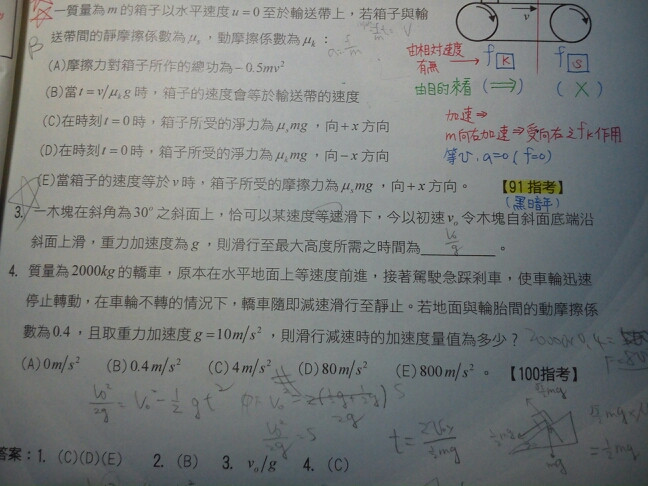 一質量為m的箱子以水平速度u=0至於輸送帶上，若箱子與輸
送帶間的靜摩擦係數為μs，動摩擦係數為μk：
(A)摩擦力對箱子所作的總功為-0.5mv²
(B)當t=v/μkg時，箱子的速度會等於輸送帶的速度
(C)在時刻t=0時，箱子所受的淨力為μsmg，向+x方向
(D)在時刻t=0時，箱子所受的淨力為μkmg，向-x方向
(E)當箱子的速度等於v時，箱子所受的摩擦力為μsmg，向+x方向。
【91指考】
v
由相對速度
有無→
f K
f S
由目的來看 (⇒) (X)
加速⇒
m向右加速⇒受向右之fk作用
等v. a=0 (f=0)
3. 一木塊在斜角為30°之斜面上，恰可以某速度等速滑下，今以初速v₀令木塊自斜面底端沿
斜面上滑，重力加速度為g，則滑行至最大高度所需之時間為 V₀/g 。
4. 質量為2000kg的轎車，原本在水平地面上等速度前進，接著駕駛急踩剎車，使車輪迅速
停止轉動，在車輪不轉的情況下，轎車隨即減速滑行至靜止。若地面與輪胎間的動摩擦係
數為0.4，且取重力加速度g=10m/s²，則滑行減速時的加速度量值為多少？
(A)0m/s² (B)0.4m/s² (C)4m/s² (D)80m/s² (E)800m/s²。【100指考】
答案：1. (C)(D)(E) 2. (B) 3. v₀/g 4. (C)